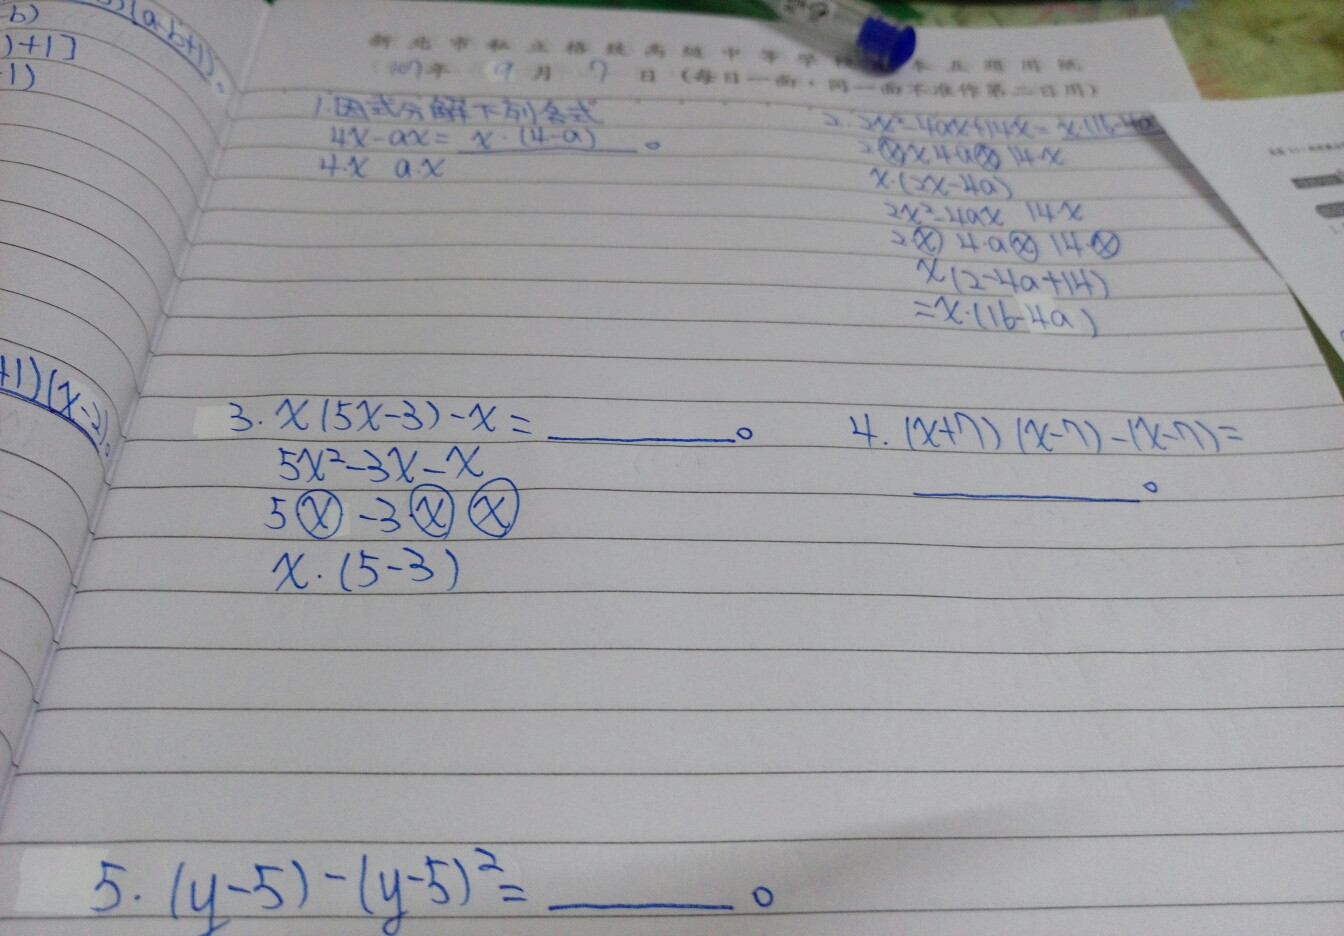 -b)
)+1]
-1)
(a-b+1)。
+1)(x-2)。
新北市私立格致高級中等學
本五題用紙
107年 9月 7日(每日一面,同一面不准作第二日用)
1.因式分解下列各式
4x-ax= x·(4-a) 。
4·x a·x
2. 2x²-4ax+14x= x·(16-4a
2ⓧx 4aⓧ 14·x
x·(2x-4a)
2x²-4ax 14·x
2ⓧ 4·aⓧ 14·ⓧ
x(2-4a+14)
=x·(16-4a)
3. x(5x-3)-x= ________。
5x²-3x-x
5ⓧ -3ⓧ ⓧ
x·(5-3)
4. (x+7)(x-7)-(x-7)=
________。
5. (y-5)-(y-5)²= ________。